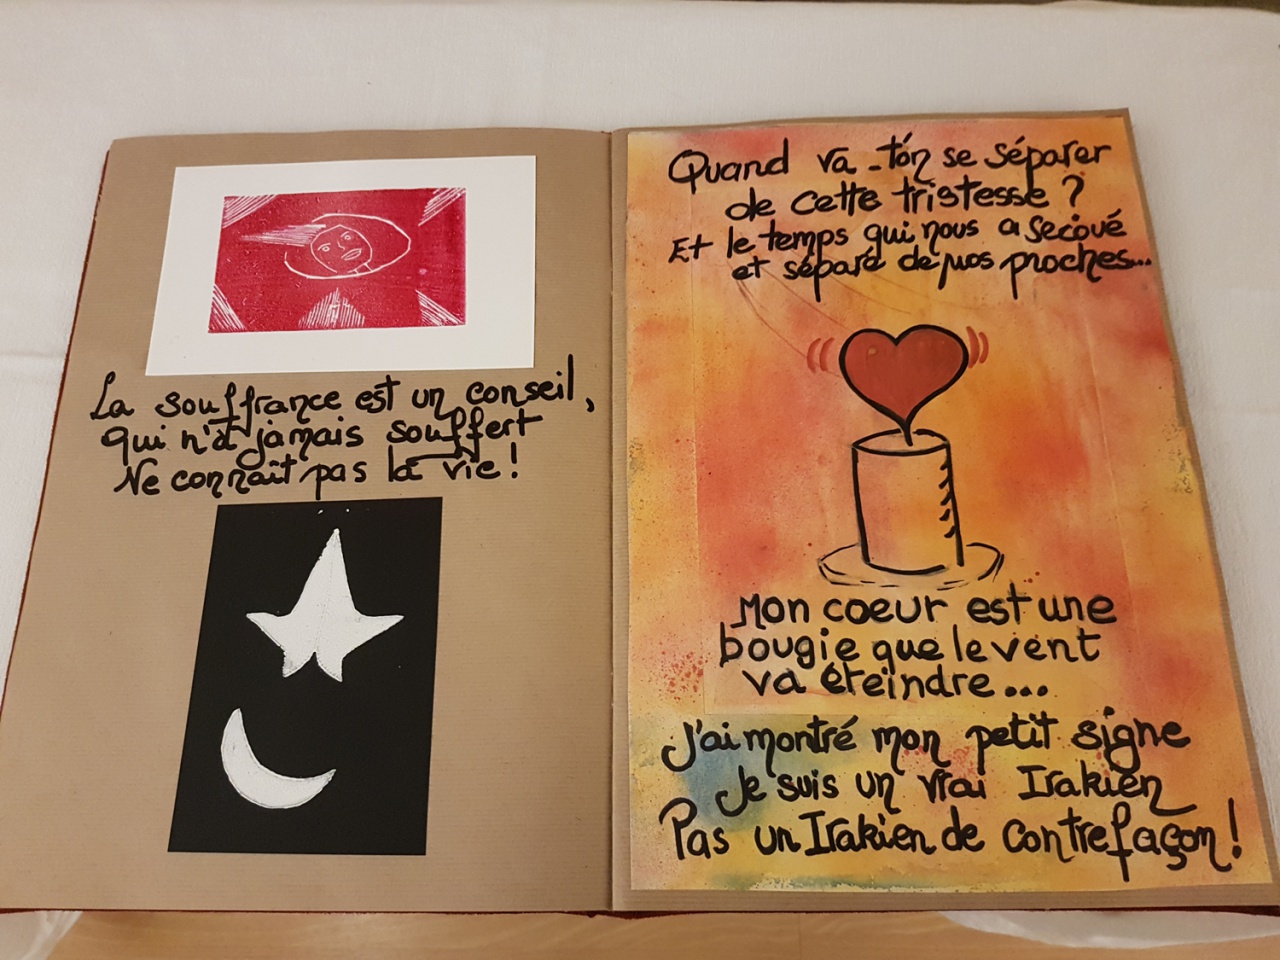 La souffrance est un conseil,
qui n'a jamais souffert
Ne connaît pas la vie !
Quand va-t'on se séparer
de cette tristesse ?
Et le temps qui nous a secoué
et séparé de nos proches...
Mon coeur est une
bougie que le vent
va éteindre...
J'ai montré mon petit signe
Je suis un vrai Irakien
Pas un Irakien de contrefaçon !